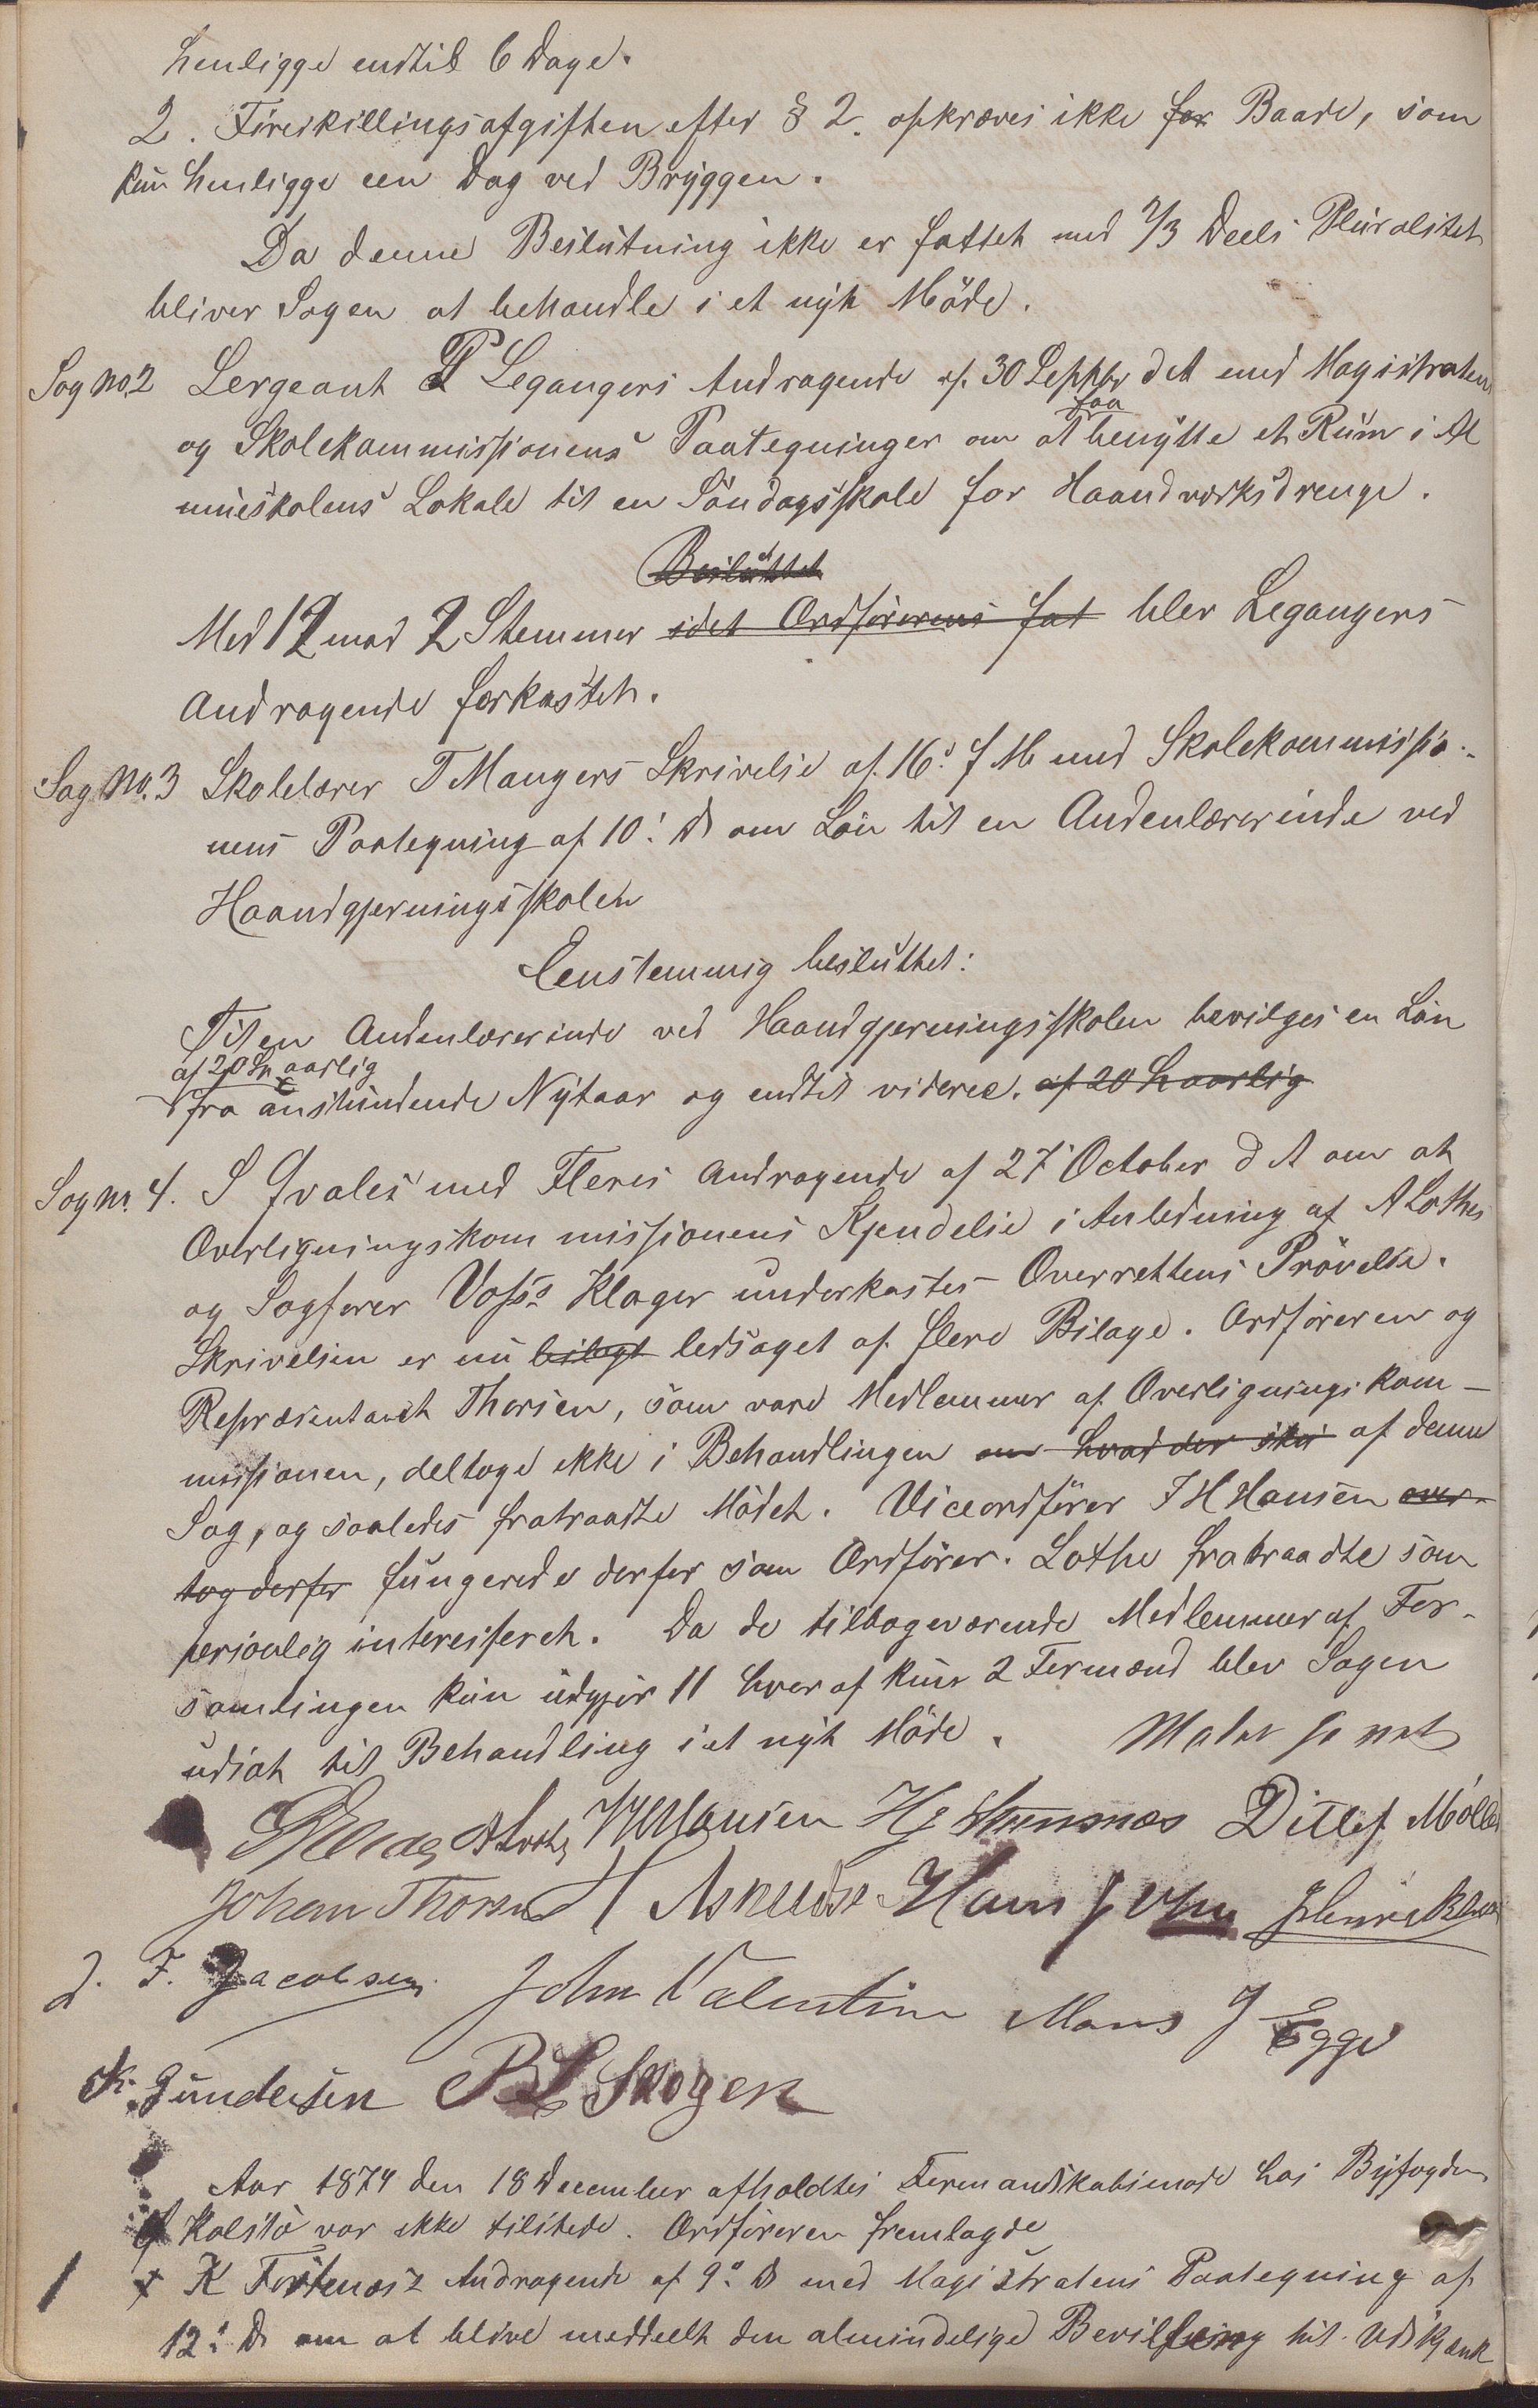 henligge indtil 6 Dage.
2. Fireskillingsafgiften efter § 2. opkræves ikke for Baade, som
kun henligge een Dag ved Bryggen.
Da denne Beslutning ikke er fattet med 2/3 Deels Pluralitet
bliver Sagen at behandle i et nyt Möde.
Sag No. 2 Sergeant P Legangers Andragende af 30 Septbr d A med Magistratens
og Skolekommissionens Paategninger om at faa benytte et Rum i Al
mueskolens Lokale til en Söndagsskole for Haandværksdrenge.
Besluttet
Med 12 mod 2 Stemmer idet Ordförerens fat blev Legangers
Andragende forkastet.
Sag No. 3 Skolelærer T Mangers Skrivelse af 16s f M med Skolekommissio-
nens Paategning af 10s Ds om Lön til en Andenlærerinde ved
Haandgjerningsskolen
Eenstemmig besluttet:
Til en Andenlærerinde ved Haandgjerningsskolen bevilges en Lön
af 20 Sp aarlig
fra anstundende Nytaar og indtil videre. af 20 Sp aarlig
Sag No. 4. S Qvales med Fleres Andragende af 27 October d A om at
Overligningskommissionens Kjendelse i Anledning af A Lothes
og Sagförer Voss's Klager underkastes Overrettens Prövelse.
Skrivelsen er nu bilagt ledsaget af flere Bilage. Ordföreren og
Repræsentant Thorsen, som vare Medlemmer af Overligningskom-
missionen, deltoge ikke i Behandlingen om hvad der skei af denne
Sag, og saaledes fratraadte Mödet. Viceordförer J H Hansen over-
tog derfor fungerede derfor som Ordförer. Lothe fratraadte som
personlig interesseret. Da de tilbageværende Medlemmer af For-
samlingen kun udgjör 11 hvoraf kun 2 Formænd blev Sagen
udsat til Behandling i et nyt Möde. Mödet hævet
A Lothe J H Hansen Ditlef Möller
Johan Thorsen H Hans J
J. F. Jacobsen John Valentin Mons J Egge
K. Gundersen P L Skogen
Aar 1874 den 18 December afholdtes Formandskabsmöde hos Byfogden
Kolstö var ikke tilstede. Ordföreren fremlagde
1 K Andragende af 9s Ds med Magistratens Paategning af
12s Ds om at blive meddeelt den almindelige Bevilling til Udskjænk